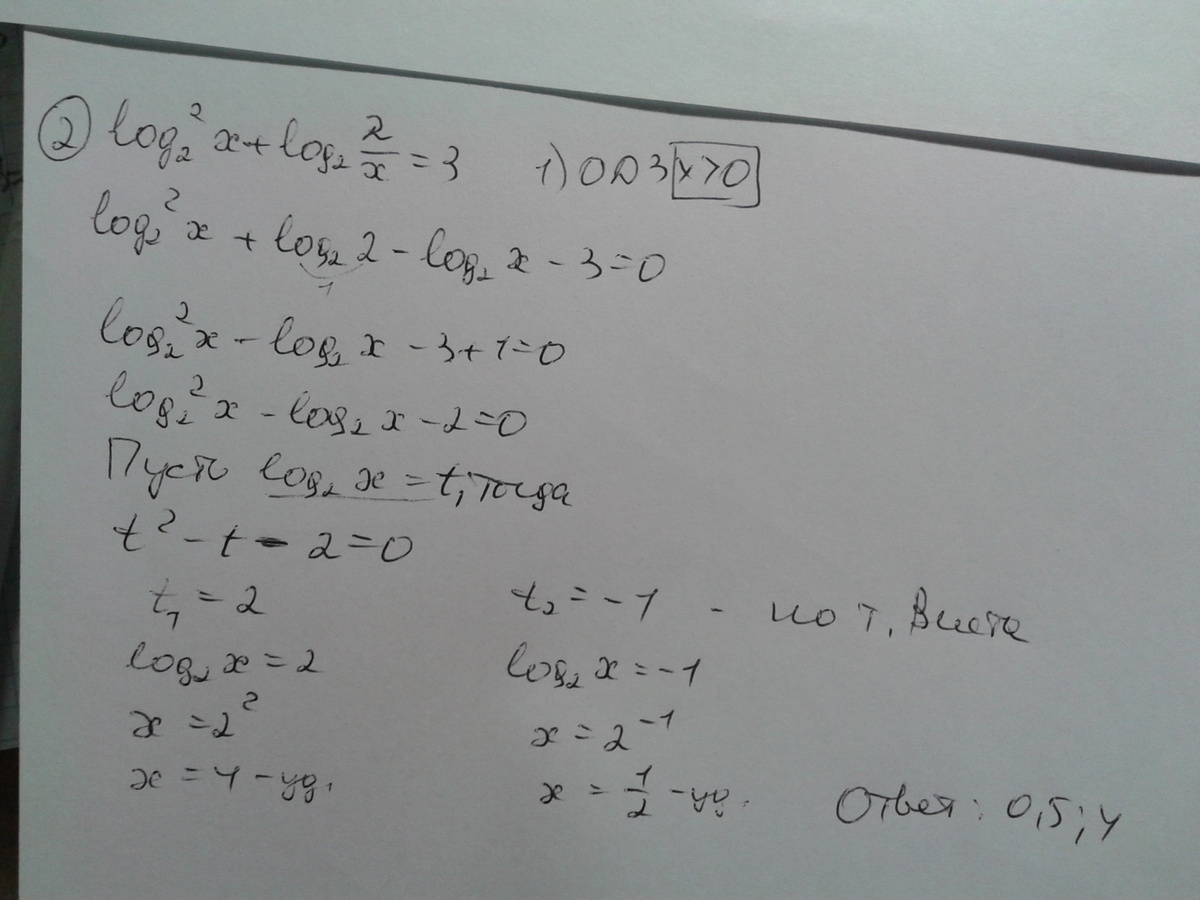 ② log₂²x + log₂ 2/x = 3 1) ОДЗ x>0
log₂²x + log₂2 - log₂x - 3=0
1
log₂²x - log₂x - 3+1=0
log₂²x - log₂x - 2=0
Пусть log₂x = t, тогда
t² - t - 2=0
t₁ = 2 t₂ = -1 - по т. Виета
log₂x = 2 log₂x = -1
x = 2² x = 2⁻¹
x = 4 - уд. x = 1/2 - уд. Ответ: 0,5; 4